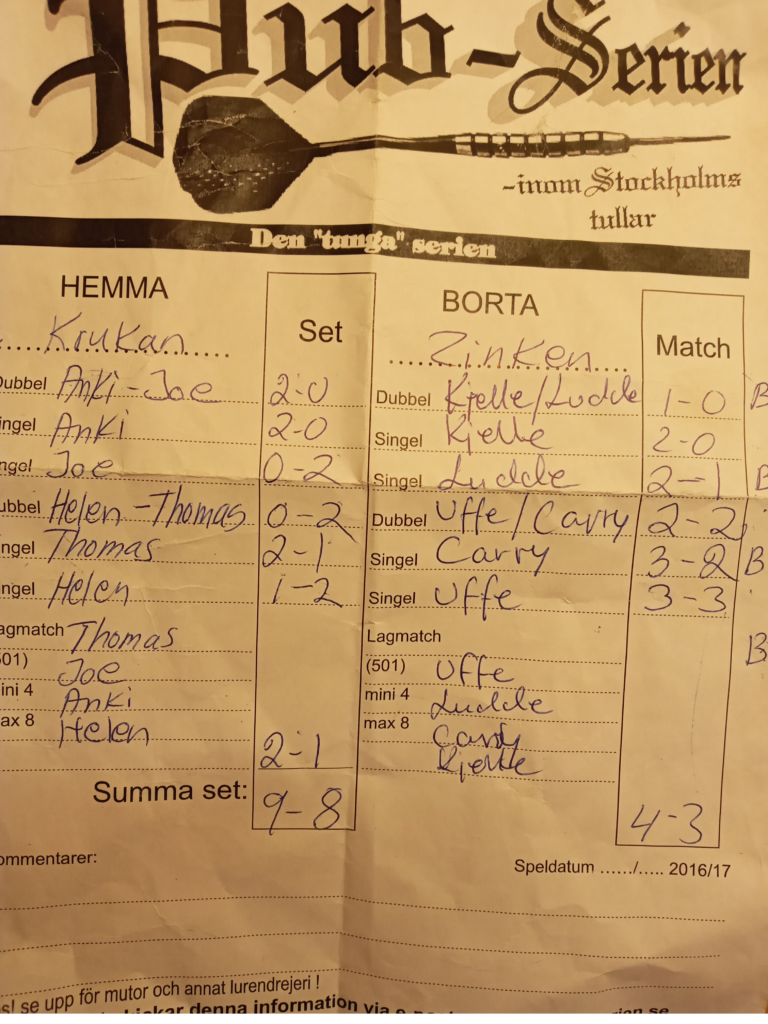 Pub-Serien
-inom Stockholms
tullar
Den "tunga" serien
HEMMA Set BORTA Match
Krukan Zinken
Dubbel Anki-Joe 2-0 Dubbel Kjelle/Ludde 1-0 B
ingel Anki 2-0 Singel Kjelle 2-0
ngel Joe 0-2 Singel Ludde 2-1 B
ubbel Helen-Thomas 0-2 Dubbel Uffe/Carry 2-2
ngel Thomas 2-1 Singel Carry 3-2 B
ingel Helen 1-2 Singel Uffe 3-3
agmatch Thomas Lagmatch B
501) Joe (501) Uffe
ini 4 Anki mini 4 Ludde
ax 8 Helen max 8 Carry
2-1 Kjelle
Summa set: 9-8 4-3
ommentarer: Speldatum ....../..... 2016/17
s! se upp för mutor och annat lurendrejeri !
denna information via